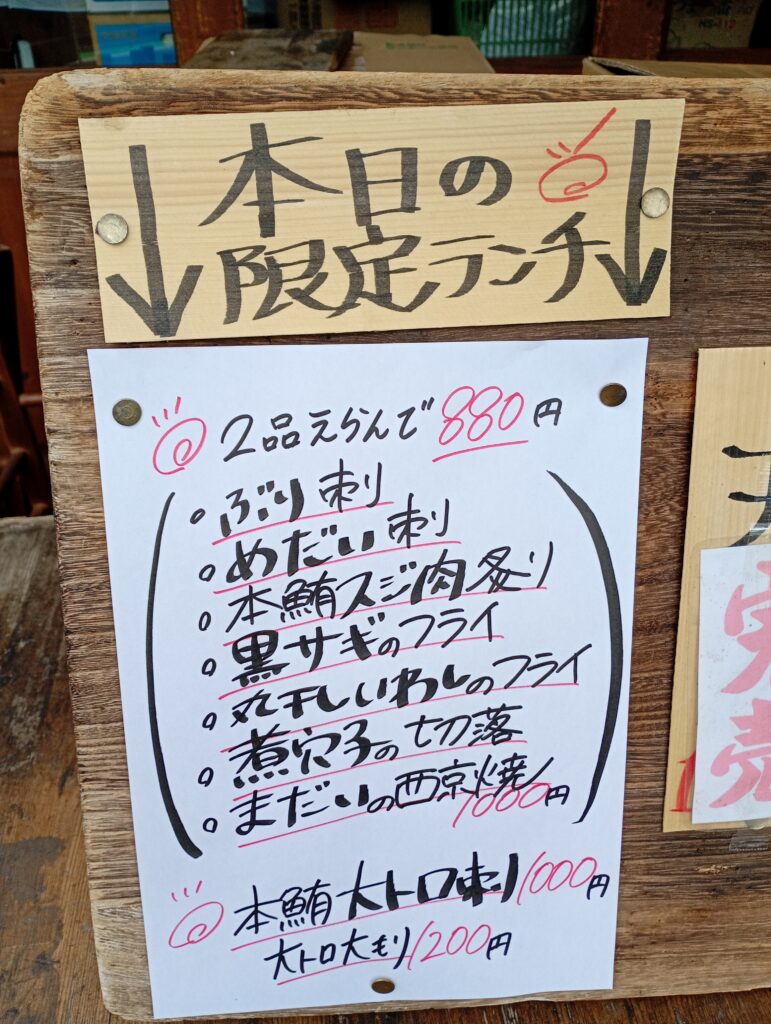 本日の
限定ランチ
2品えらんで880円
ぶり刺
めだい刺
本鮪スジ肉炙り
黒サギのフライ
丸干しいわしのフライ
煮穴子の切落
まだいの西京焼
1000円
本鮪大トロ刺1000円
大トロ大もり1200円
完売